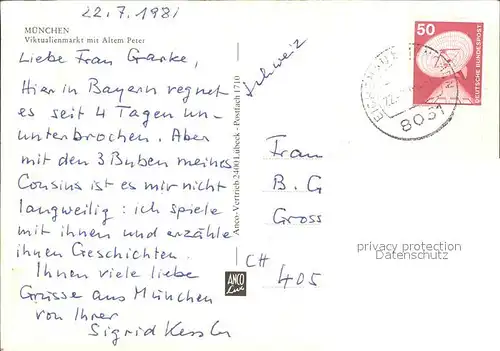 22.7.1981
MÜNCHEN
Viktualienmarkt mit Altem Peter
Liebe Frau Garke,
Hier in Bayern regnet
es seit 4 Tagen un-
unterbrochen. Aber
mit den 3 Buben meines
Cousins ist es mir nicht
langweilig: ich spiele
mit ihnen und erzähle
ihnen Geschichten.
Ihnen viele liebe
Grüsse aus München
von Ihrer
Sigrid Kessler
Anco-Vertrieb 2400 Lübeck · Postfach 1710
ANCO
Lux
Schweiz
50
DEUTSCHE BUNDESPOST
8051
Frau
B. G
Gross
CH
405
privacy protection
Datenschutz